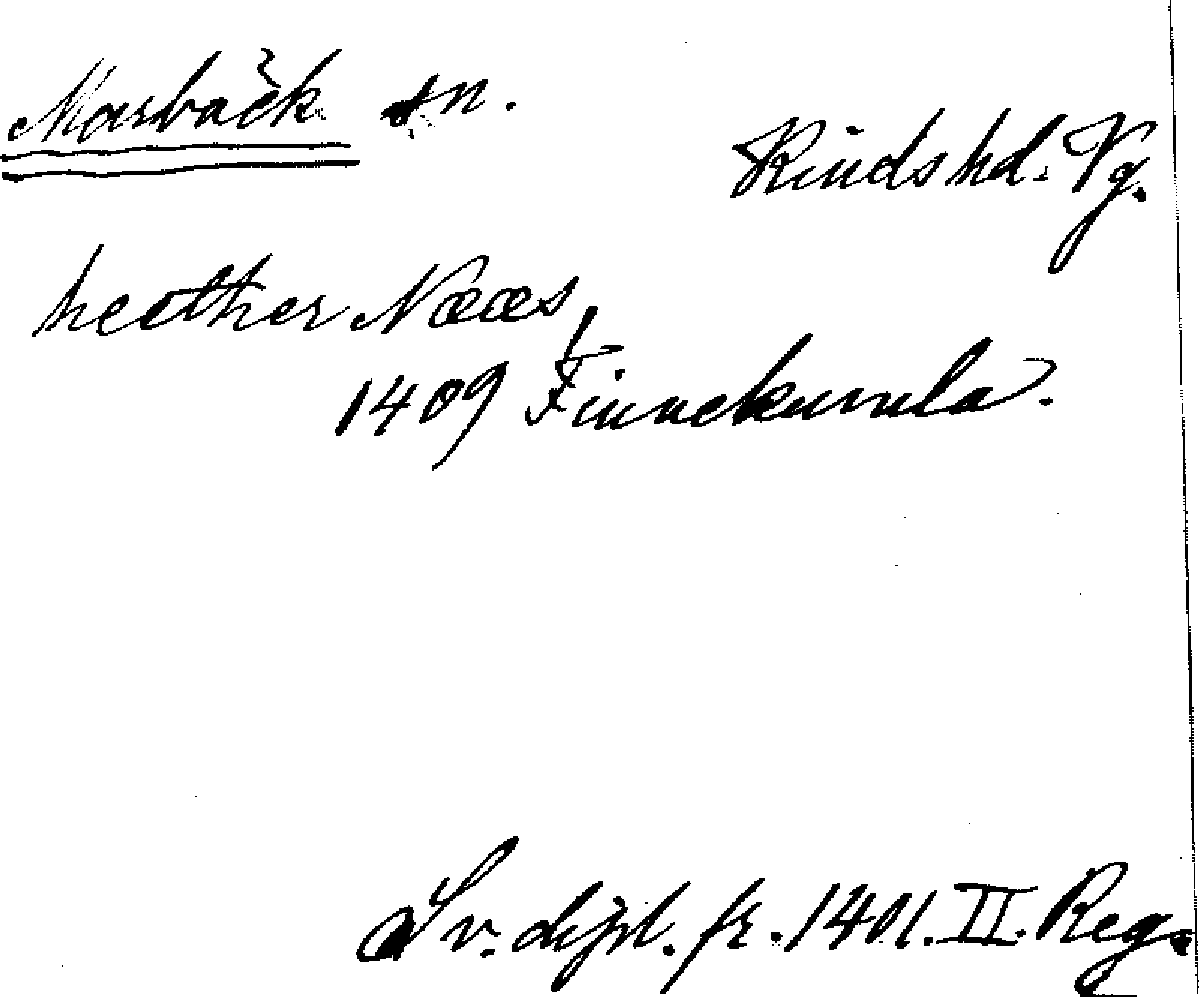 Marbäck sn.
Kinds hd. Vg.
heether Nææs,
1409 Finnekumla.
Sv. dipl. fr. 1401. II. Reg.